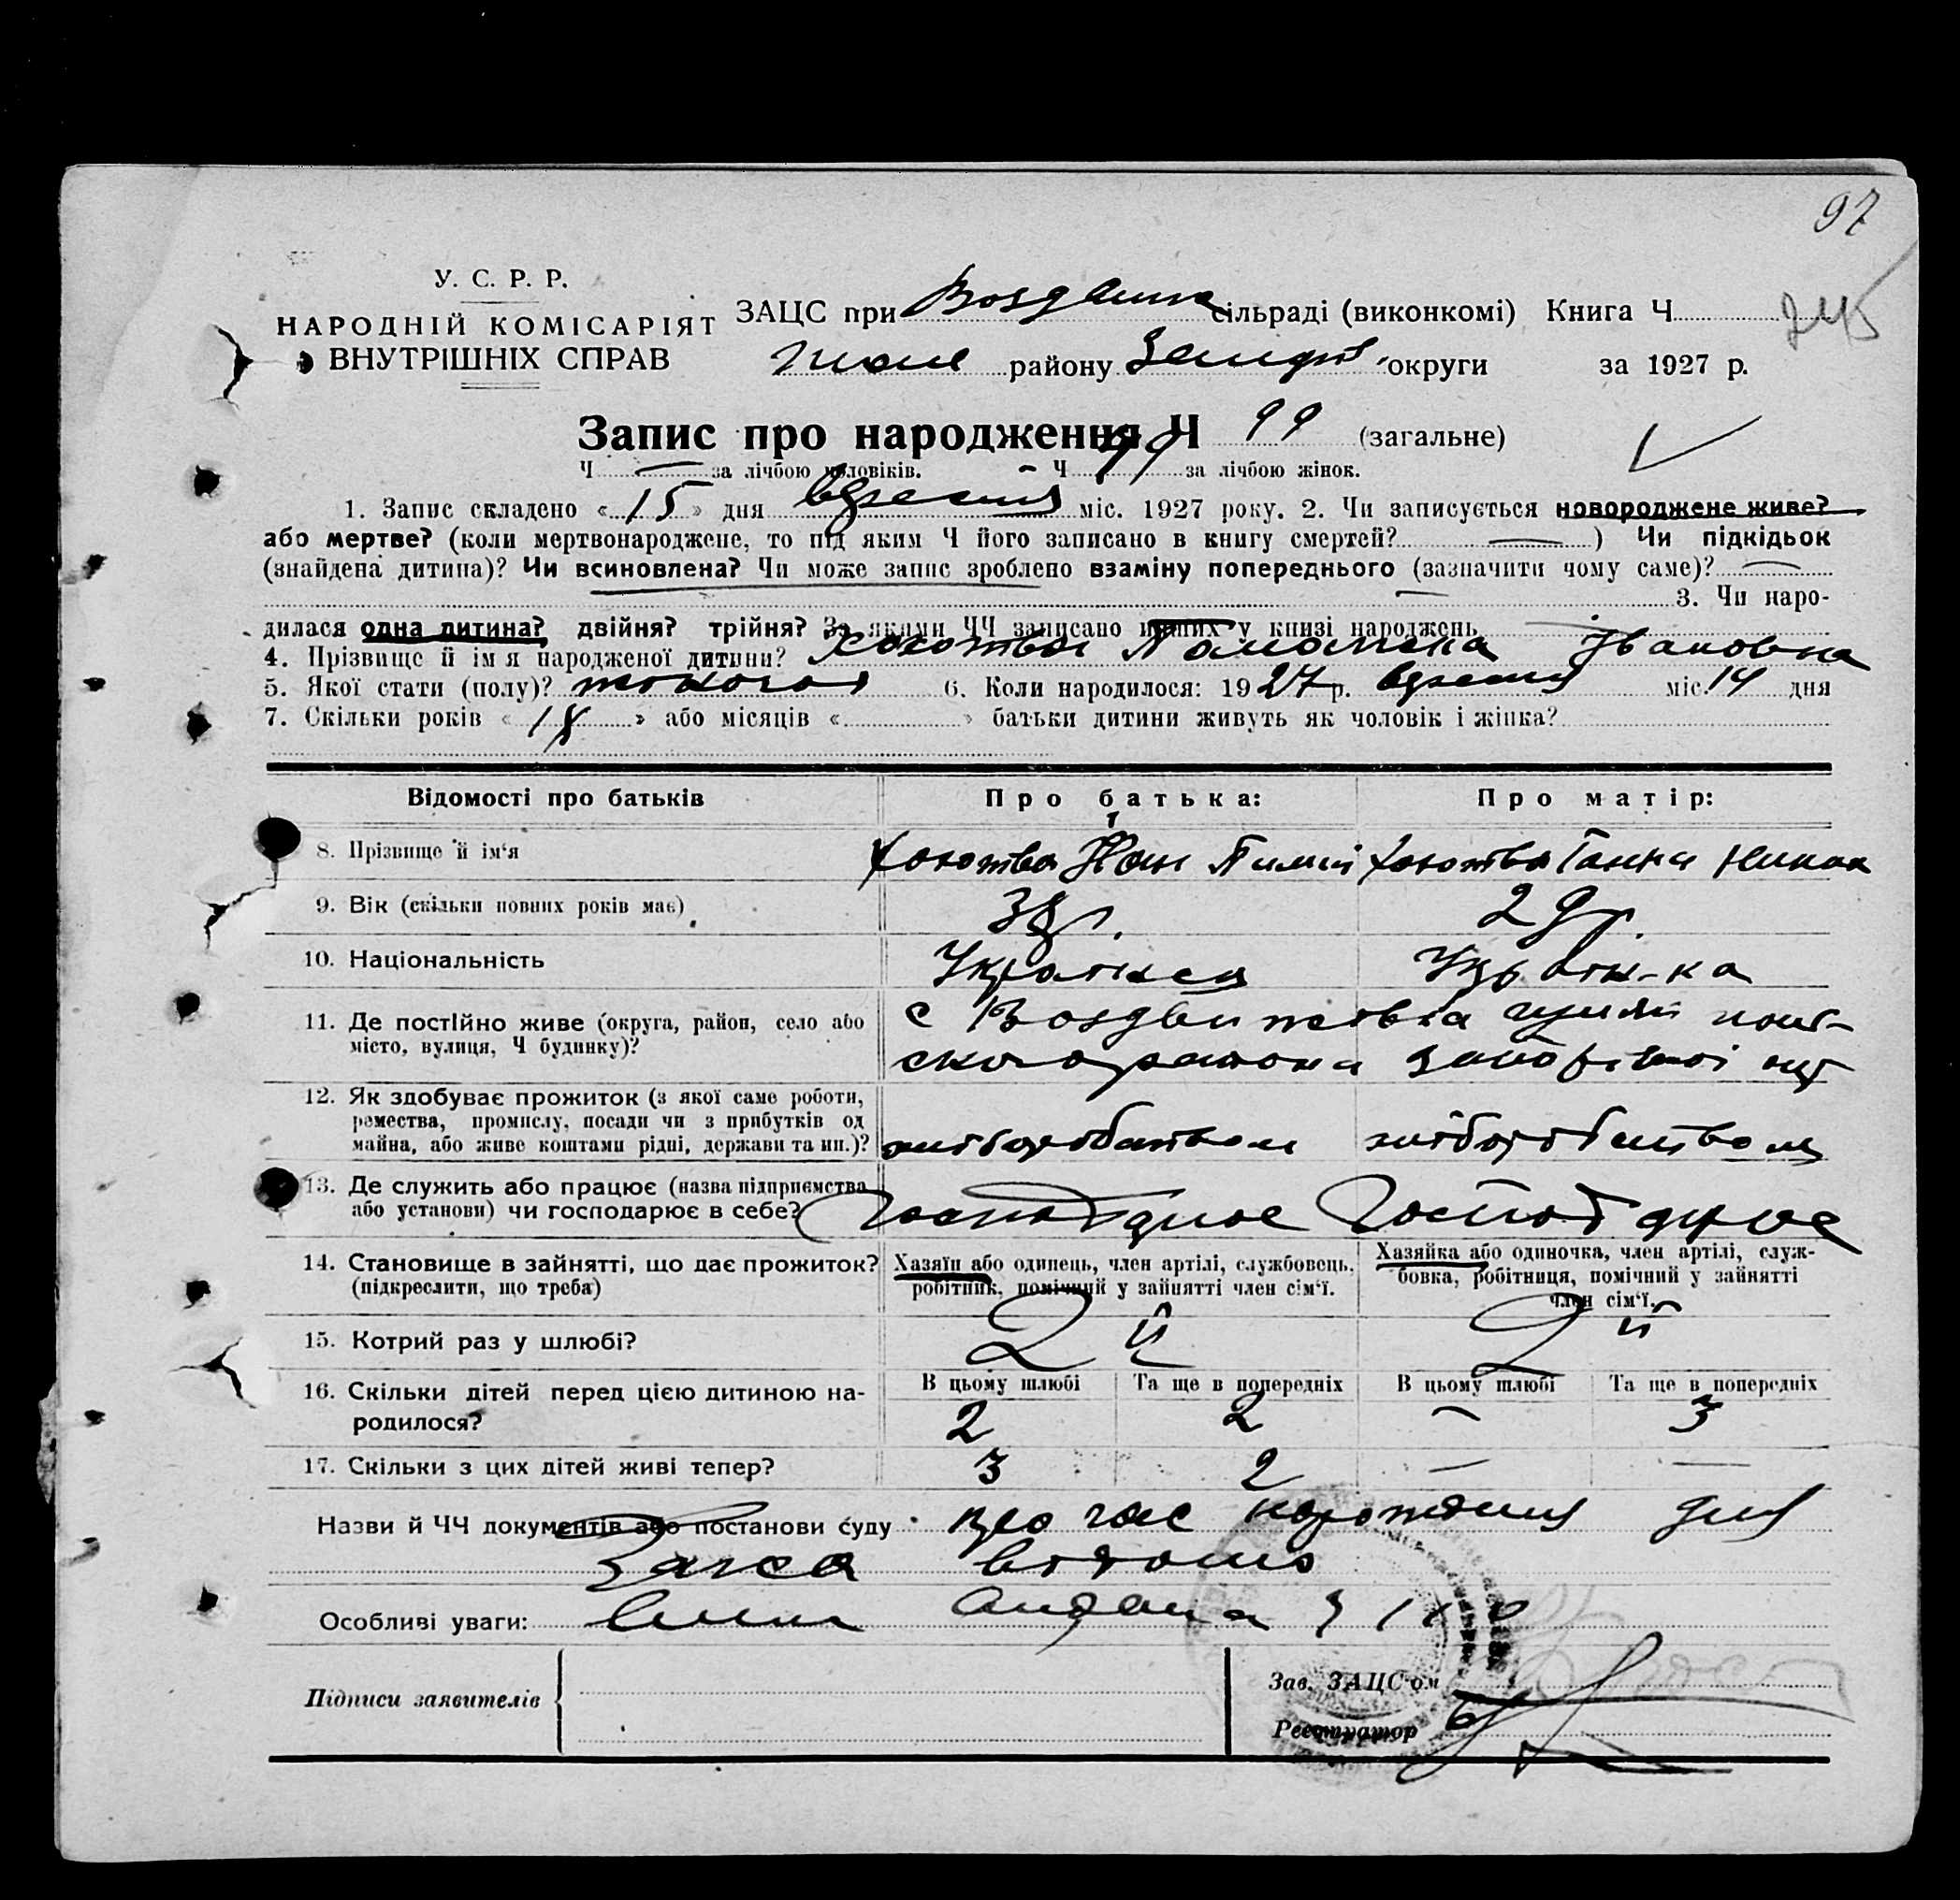 97
245
У. С. Р. Р.
НАРОДНІЙ КОМІСАРІЯТ
ВНУТРІШНІХ СПРАВ
ЗАЦС при сільраді (виконкомі) Книга Ч.
району округи за 1927 р.
Запис про народження Ч 99 (загальне)
Ч — за лічбою чоловіків. Ч за лічбою жінок.
1. Запис складено «15» дня вересня міс. 1927 року. 2. Чи записується новороджене живе?
або мертве? (коли мертвонароджене, то під яким Ч його записано в книгу смертей? —) Чи підкідьок
(знайдена дитина)? Чи всиновлена? Чи може запис зроблено взаміну попереднього (зазначити чому саме)? —
— 3. Чи наро-
дилася одна дитина? двійня? трійня? За якими ЧЧ записано інших у книзі народжень
4. Прізвище й ім'я народженої дитини? Івановна
5. Якої стати (полу)? 6. Коли народилося: 1927 р. вересня міс. 14 дня
7. Скільки років «18» або місяців « » батьки дитини живуть як чоловік і жінка?
Відомості про батьків Про батька: Про матір:
8. Прізвище й ім'я Ганна
9. Вік (скільки повних років має) 38 р. 29 р.
10. Національність Українец Україн-ка
11. Де постійно живе (округа, район, село або
місто, вулиця, Ч будинку)?
с Воздвижівка
района
12. Як здобуває прожиток (з якої саме роботи,
ремества, промислу, посади чи з прибутків од
майна, або живе коштами рідні, держави та ин.)?
хліборобством хліборобством
13. Де служить або працює (назва підприємства
або установи) чи господарює в себе?
14. Становище в зайнятті, що дає прожиток?
(підкреслити, що треба)
Хазяїн або одинець, член артілі, службовець,
робітник, помічний у зайнятті член сім'ї.
Хазяйка або одиночка, член артілі, служ-
бовка, робітниця, помічний у зайнятті
член сім'ї.
15. Котрий раз у шлюбі? 2 й 2 й
16. Скільки дітей перед цією дитиною на-
родилося?
В цьому шлюбі Та ще в попередніх В цьому шлюбі Та ще в попередніх
2 2 — 3
17. Скільки з цих дітей живі тепер? 3 2 — —
Назви й ЧЧ документів або постанови суду про час для
Загса
Особливі уваги:
Підписи заявителів
Зав. ЗАЦС'ом
Реєстратор